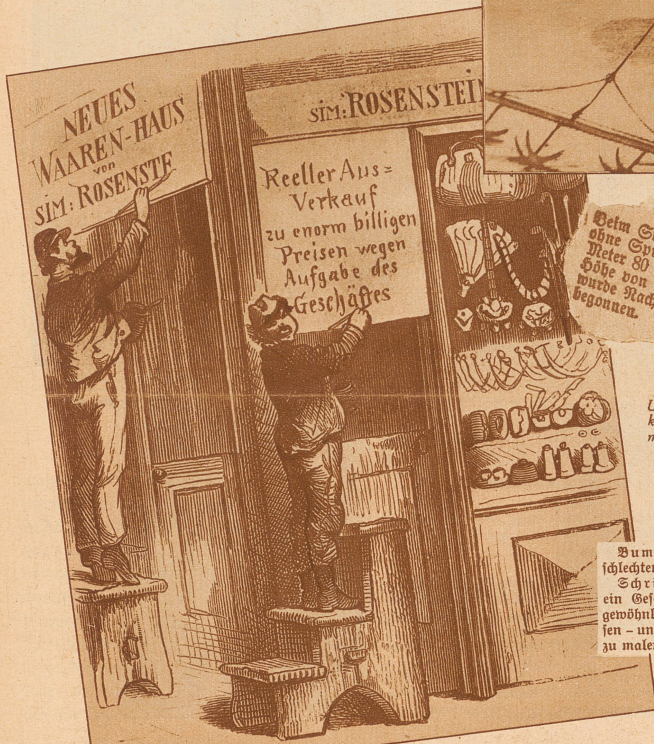 NEUES
WAAREN-HAUS
von
SIM: ROSENSTE
SIM: ROSENSTEIN
Reeller Aus=
Verkauf
zu enorm billigen
Preisen wegen
Aufgabe des
Geschäftes
Beim
ohne
Meter 80
Höhe von
wurde
begonnen.
Bum
schlechter
Schri
ein Ges
gewöhnl
sen – un
zu male